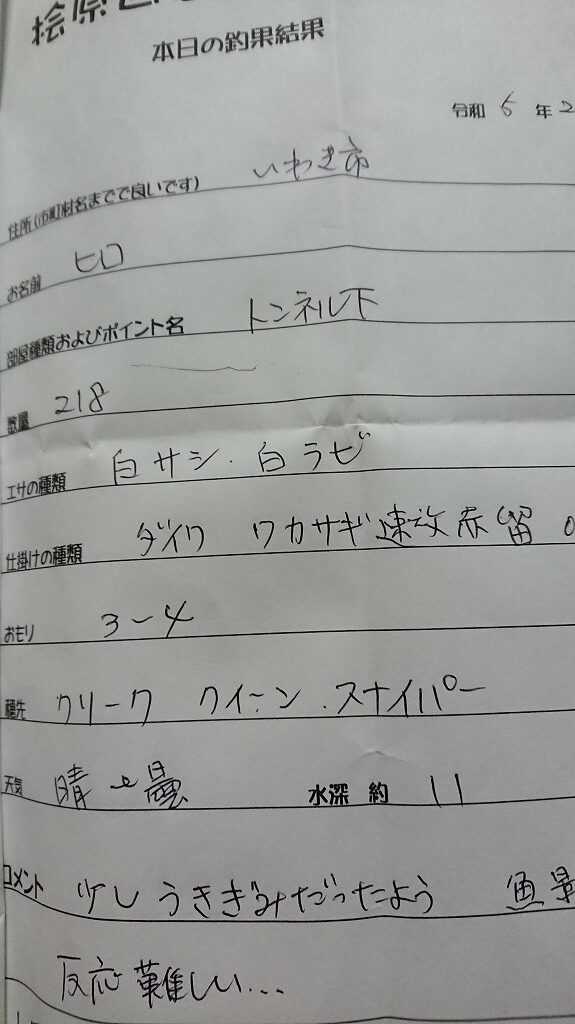 桧原
本日の釣果結果
令和 5 年 2
住所(市町村名までで良いです) いわき市
お名前 ヒロ
部屋種類およびポイント名 トンネル下
数量 218
エサの種類 白サシ.白ラビ
仕掛けの種類 ダイワ ワカサギ速攻赤留
おもり 3〜4
穂先 クリーク クイーン.スナイパー
天気 晴と曇 水深 約 11
コメント 少しうきぎみだったよう 魚影
反応難しい...